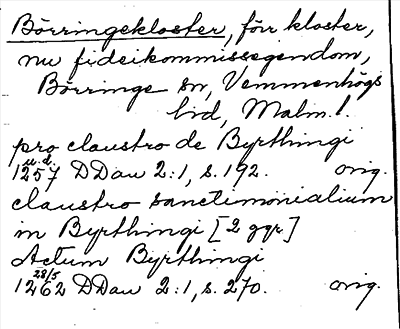 Börringekloster, förr kloster,
nu fideikommissegendom,
Börringe sn, Vemmenhögs
hd, Malm. l.
pro claustro de Byrthingi
u.d.
1257 DDan 2:1, s. 192. orig.
claustro sanctimonialium
in Byrthingi [2 ggr]
Actum Byrthingi
28/5
1262 DDan 2:1, s. 270. orig.